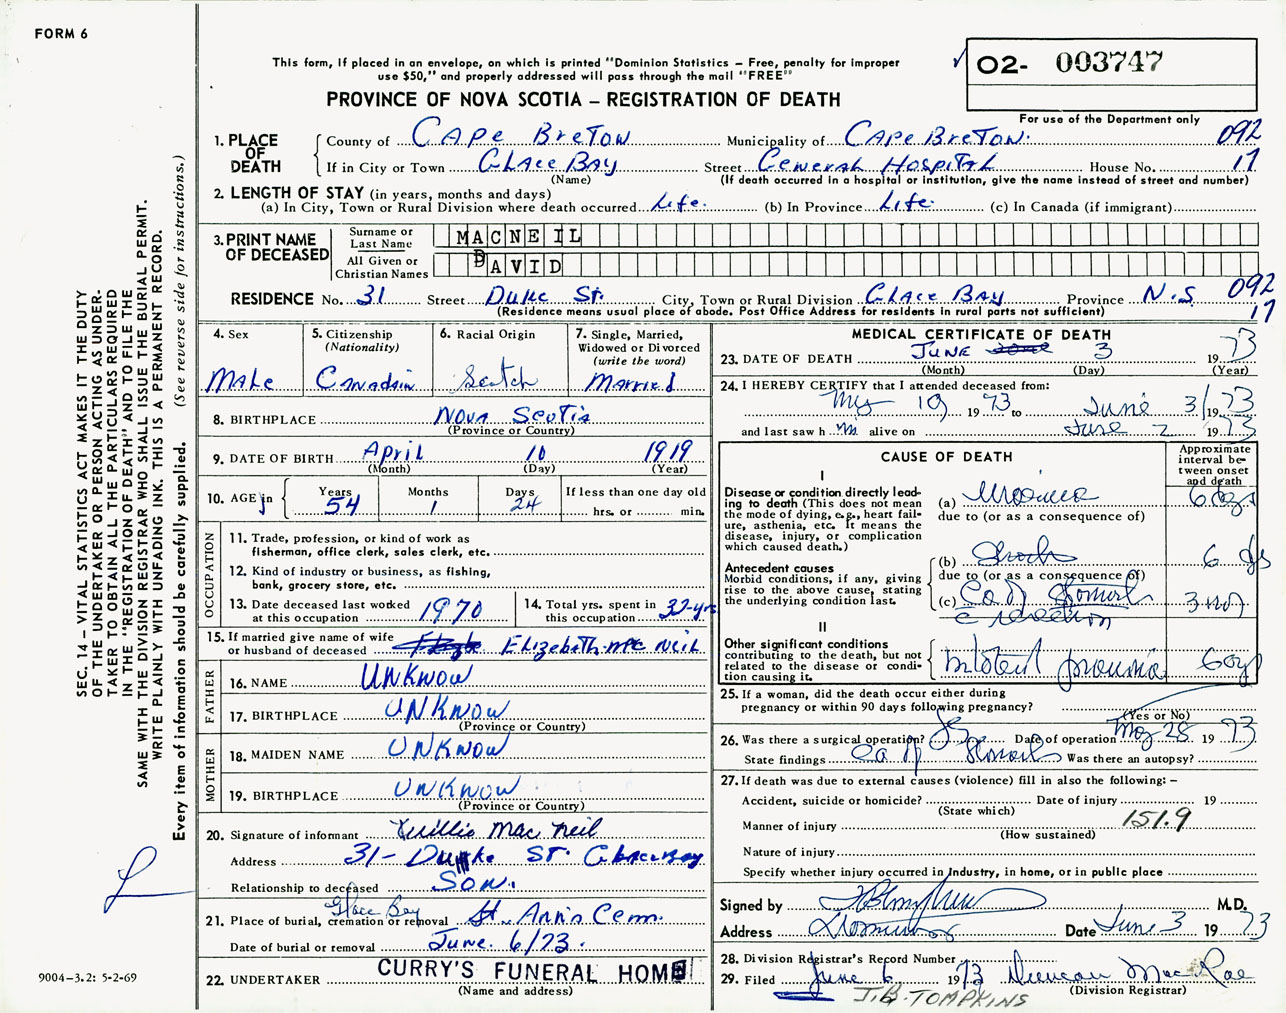 FORM 6
This form, if placed in an envelope, on which is printed "Dominion Statistics – Free, penalty for improper
use $50," and properly addressed will pass through the mail "FREE"
PROVINCE OF NOVA SCOTIA – REGISTRATION OF DEATH
02- 003747
For use of the Department only
SEC. 14 – VITAL STATISTICS ACT MAKES IT THE DUTY
OF THE UNDERTAKER OR PERSON ACTING AS UNDER-
TAKER TO OBTAIN ALL THE PARTICULARS REQUIRED
IN THE "REGISTRATION OF DEATH" AND TO FILE THE
SAME WITH THE DIVISION REGISTRAR WHO SHALL ISSUE THE BURIAL PERMIT.
WRITE PLAINLY WITH UNFADING INK. THIS IS A PERMANENT RECORD.
Every item of information should be carefully supplied. (See reverse side for instructions.)
1. PLACE OF DEATH
County of CAPE BRETON Municipality of CAPE BRETON. 092
If in City or Town GLACE BAY Street GENERAL HOSPITAL House No. 17
(Name) (If death occurred in a hospital or institution, give the name instead of street and number)
2. LENGTH OF STAY (in years, months and days)
(a) In City, Town or Rural Division where death occurred Life. (b) In Province Life. (c) In Canada (if immigrant)
3. PRINT NAME OF DECEASED
Surname or Last Name MACNEIL
All Given or Christian Names DAVID
RESIDENCE No. 31 Street DUKE ST. City, Town or Rural Division GLACE BAY Province N.S. 092
(Residence means usual place of abode. Post Office Address for residents in rural parts not sufficient) 17
4. Sex
MALE
5. Citizenship
(Nationality)
Canadain
6. Racial Origin
Scotch
7. Single, Married,
Widowed or Divorced
(write the word)
Married
8. BIRTHPLACE NOVA SCOTIA
(Province or Country)
9. DATE OF BIRTH April 10 1919
(Month) (Day) (Year)
10. AGE in Years 54 Months 1 Days 24 If less than one day old
hrs. or min.
OCCUPATION
11. Trade, profession, or kind of work as
fisherman, office clerk, sales clerk, etc.
12. Kind of industry or business, as fishing,
bank, grocery store, etc.
13. Date deceased last worked
at this occupation 1970
14. Total yrs. spent in
this occupation 32-yrs
15. If married give name of wife
or husband of deceased Elizabeth Mc Neil
FATHER
16. NAME UNKNOW
17. BIRTHPLACE UNKNOW
(Province or Country)
MOTHER
18. MAIDEN NAME UNKNOW
19. BIRTHPLACE UNKNOW
(Province or Country)
20. Signature of informant Willis Mac Neil
Address 31- Duke ST. Glace Bay
Relationship to deceased SON.
Glace Bay
21. Place of burial, cremation or removal St. Ann's Cem.
Date of burial or removal June. 6/73.
22. UNDERTAKER CURRY'S FUNERAL HOME
(Name and address)
9004–3.2: 5-2-69
MEDICAL CERTIFICATE OF DEATH
23. DATE OF DEATH JUNE 3 1973
(Month) (Day) (Year)
24. I HEREBY CERTIFY that I attended deceased from:
May 10 1973 to June 3/1973
and last saw h im alive on June 2 1973
CAUSE OF DEATH
Approximate
interval be-
tween onset
and death
I
Disease or condition directly lead-
ing to death (This does not
mean the mode of dying, e.g., heart fail-
ure, asthenia, etc. It means the
disease, injury, or complication
which caused death.)
(a) Uraemia 6 days
due to (or as a consequence of)
Antecedent causes
Morbid conditions, if any, giving
rise to the above cause, stating
the underlying condition last.
(b) Shock 6 ds
due to (or as a consequence of)
(c) Ca of Stomach 3 mos
c resection
II
Other significant conditions
contributing to the death, but not
related to the disease or condi-
tion causing it.
25. If a woman, did the death occur either during
pregnancy or within 90 days following pregnancy?
(Yes or No)
26. Was there a surgical operation? yes Date of operation May 28 1973
State findings Ca of Stomach Was there an autopsy?
27. If death was due to external causes (violence) fill in also the following: –
Accident, suicide or homicide? Date of injury 19
(State which)
Manner of injury 151.9
(How sustained)
Nature of injury
Specify whether injury occurred in Industry, in home, or in public place
Signed by M.D.
Address Date June 3 1973
28. Division Registrar's Record Number
29. Filed June 6 1973 Duncan MacRae
(Division Registrar)
J.B. TOMPKINS